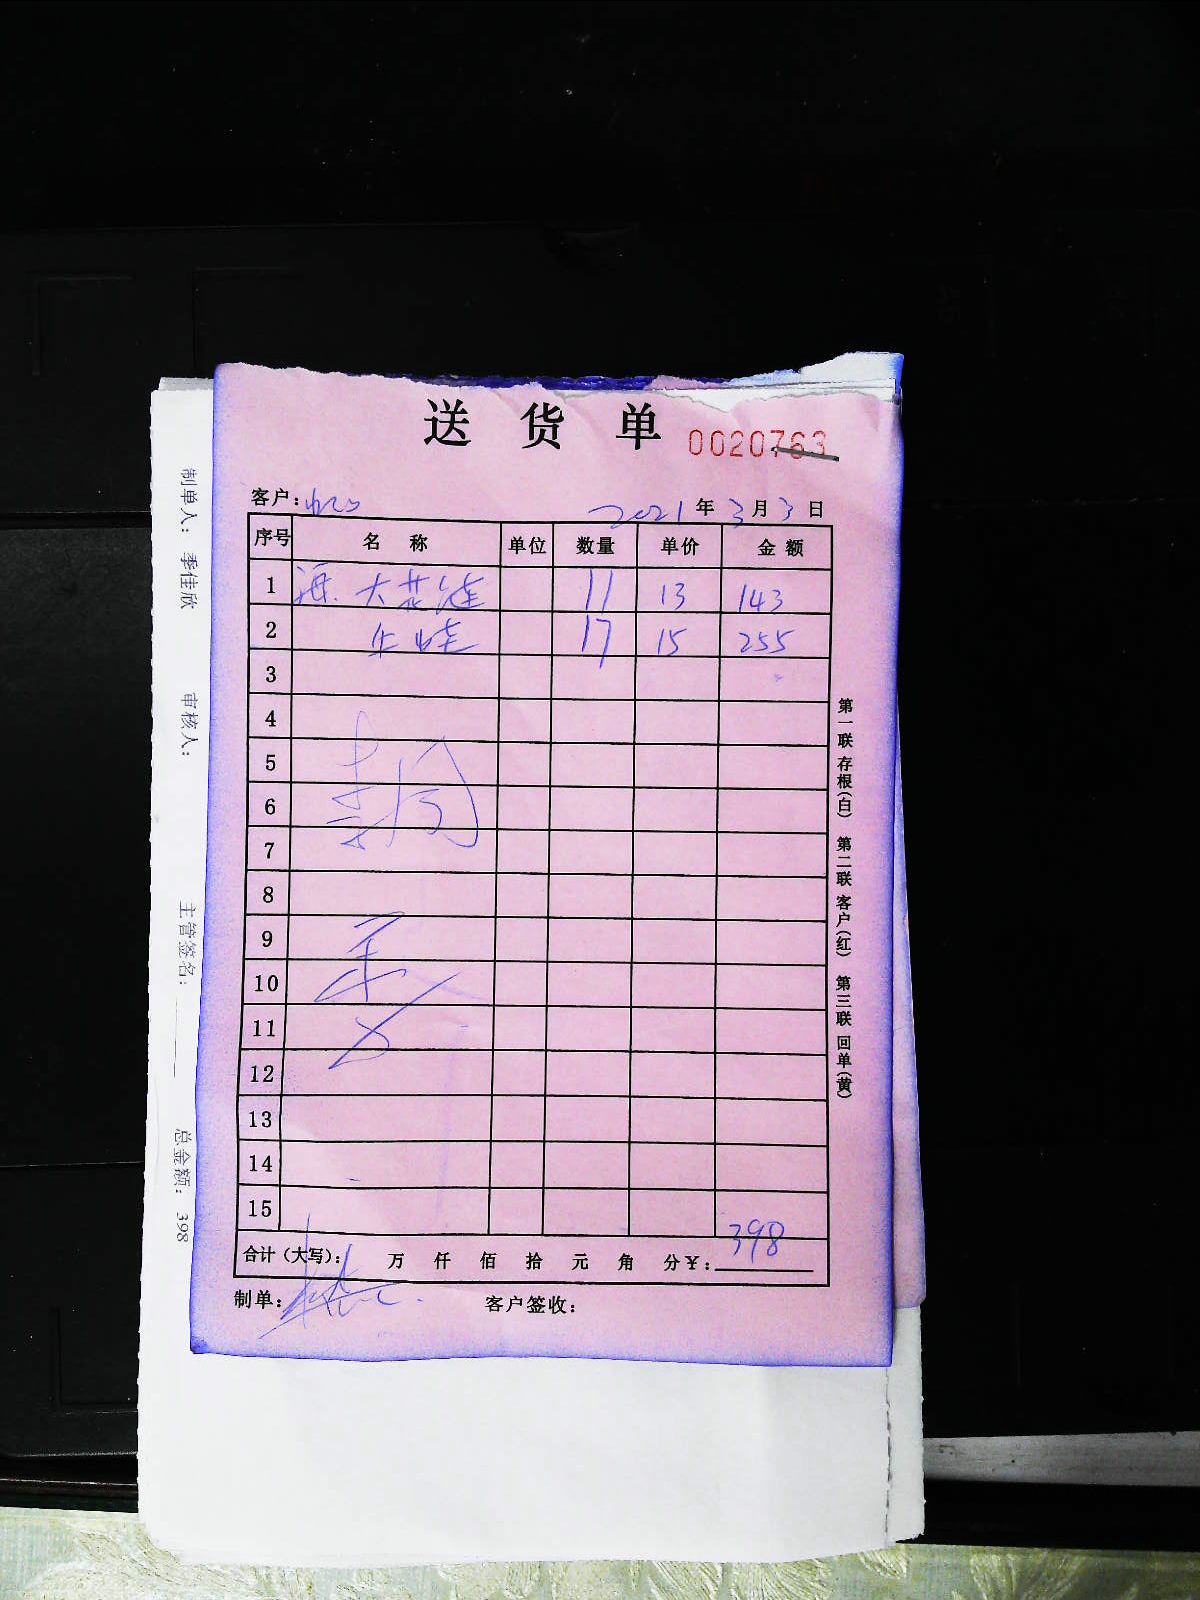 送货单 0020763
客户：
2021年3月3日
序号 名称 单位 数量 单价 金额
1 大花涟 11 13 143
2 牛蛙 17 15 255
3
4
5
6
7
8
9
10
11
12
13
14
15
合计（大写）： 万 仟 佰 拾 元 角 分¥：398
制单： 客户签收：
第一联 存根（白） 第二联 客户（红） 第三联 回单（黄）
制单人：季佳欣 审核人： 主管签名： 总金额：398